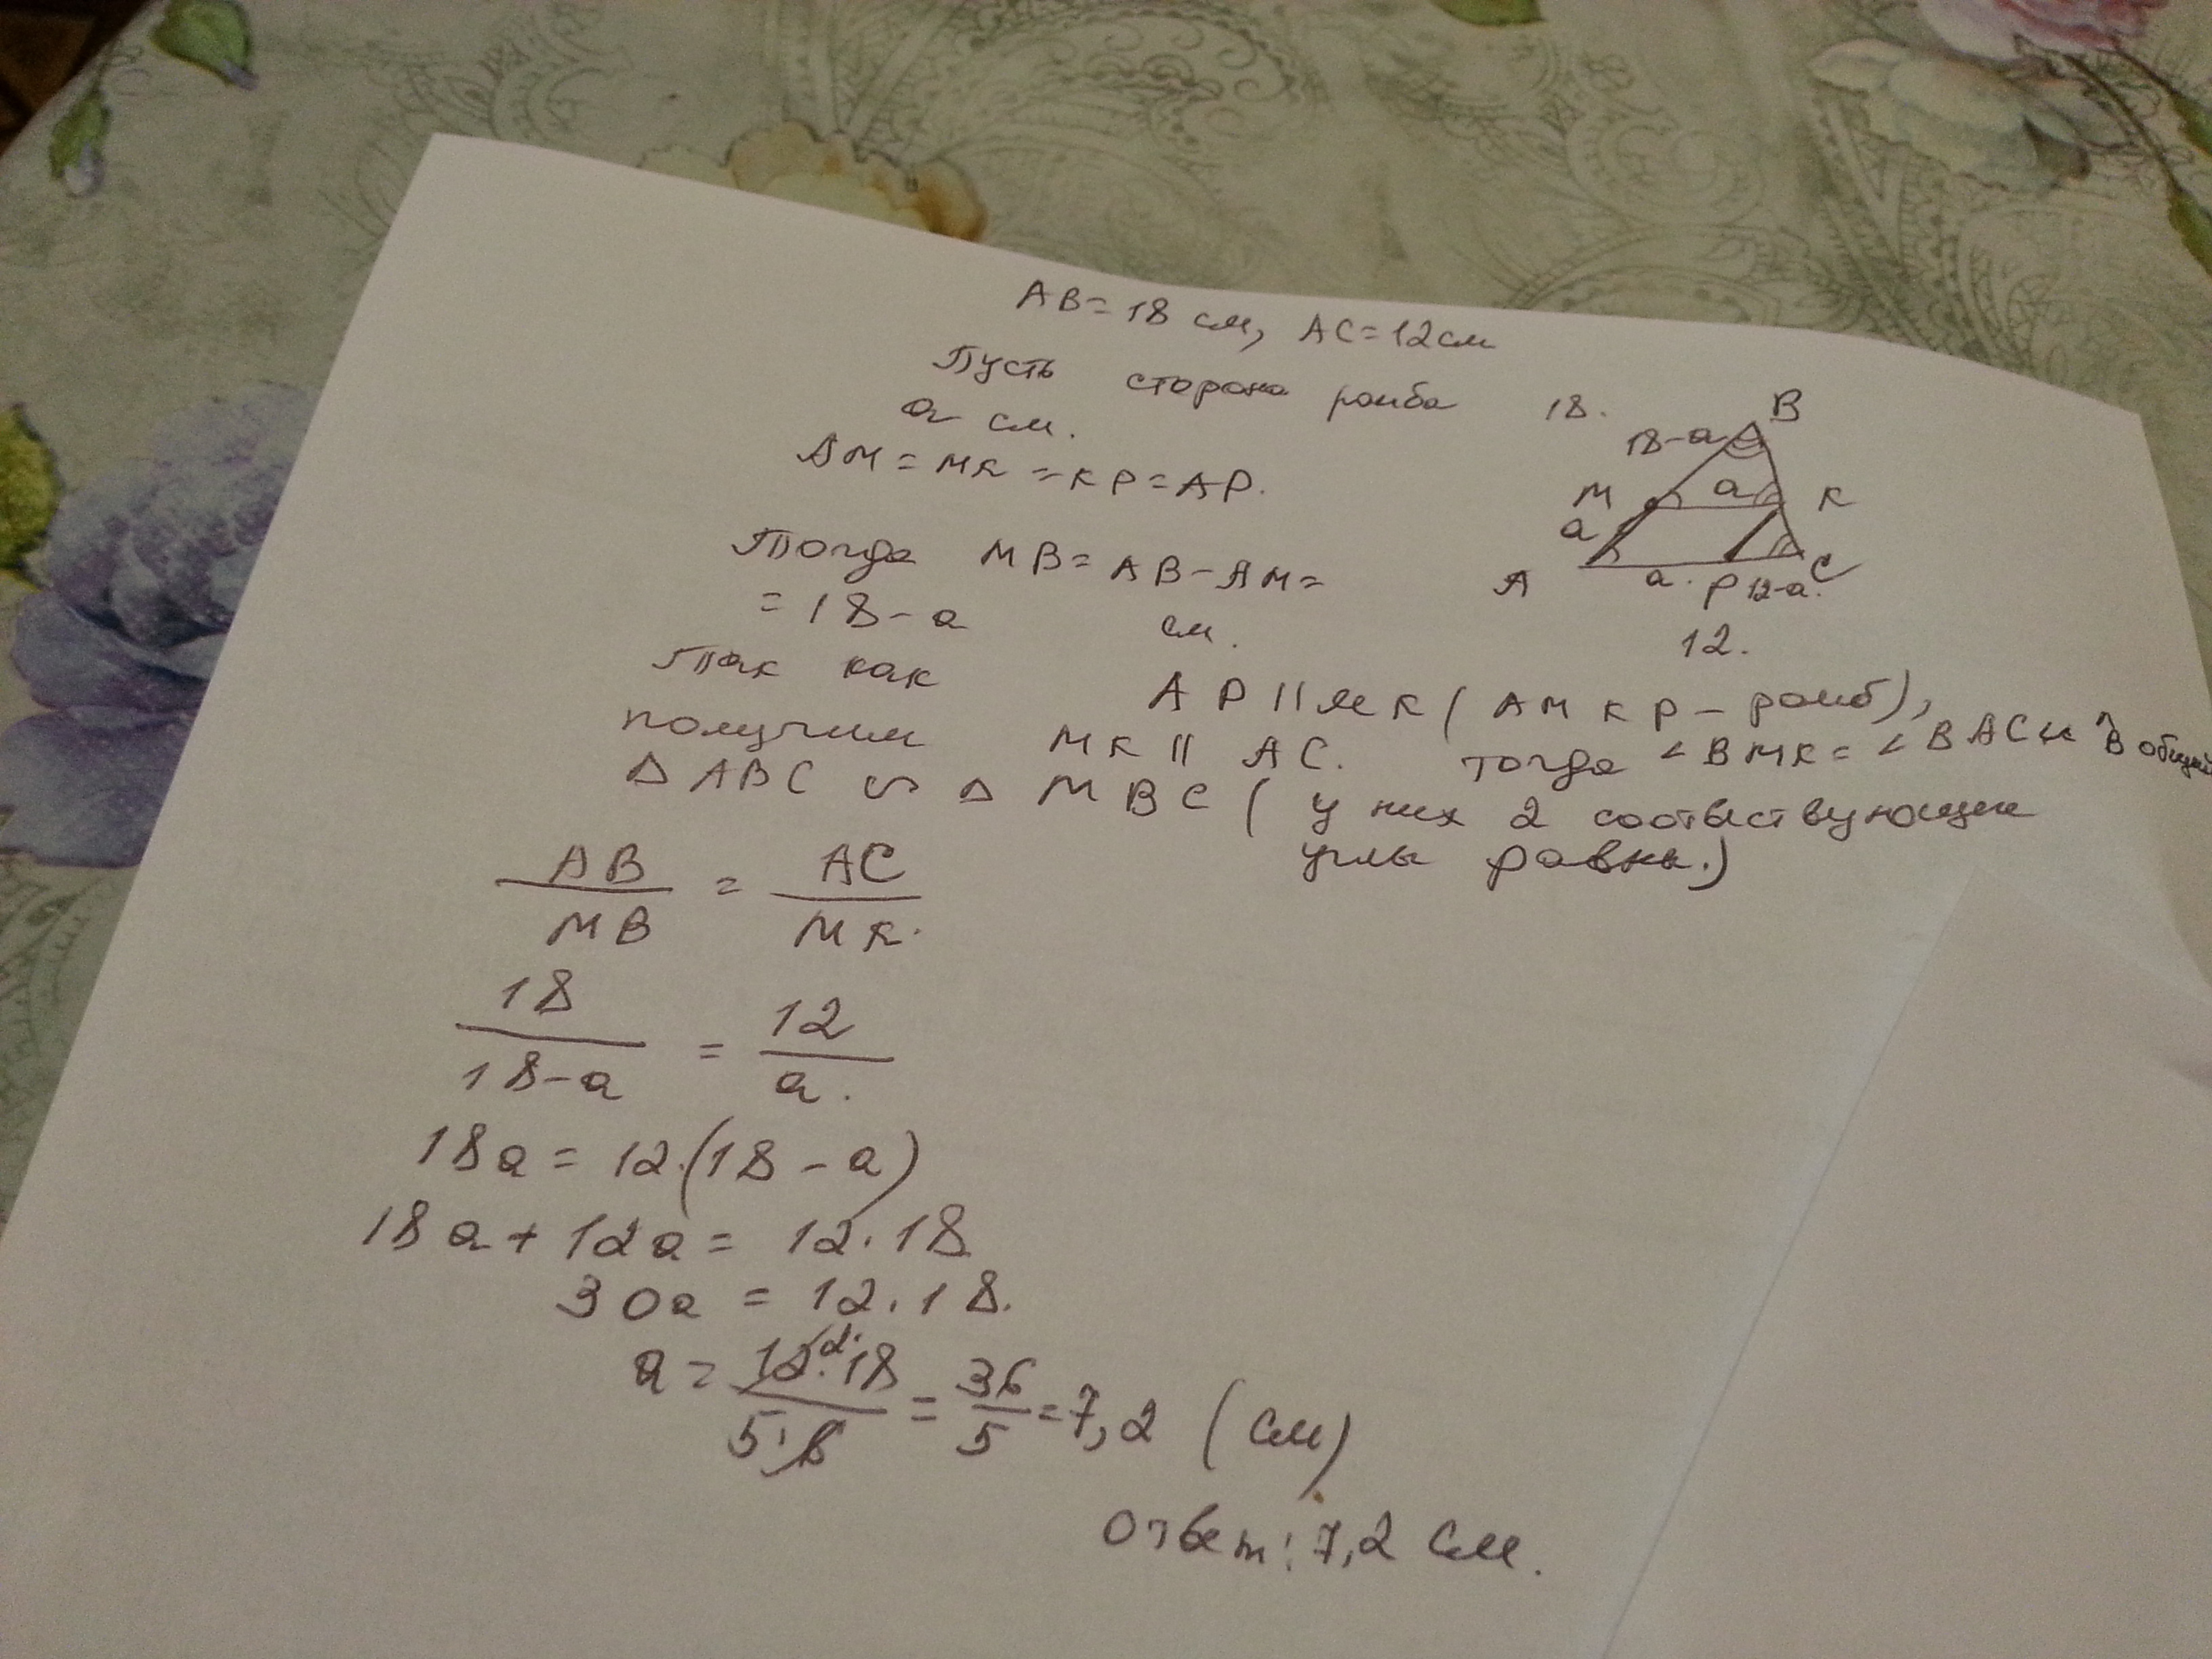 AB = 18 см, AC = 12 см
Пусть сторона ромба
a см.
AM = MK = KP = AP.
Тогда MB = AB - AM =
= 18 - a см.
18.
B
18-a
M a K
a
A a. P 12-a. C
12.
Так как AP || MK (AMKP - ромб),
получим MK || AC. тогда ∠BMK = ∠BAC и B общий
Δ ABC ∽ Δ MBC (у них 2 соответствующие
углы равны.)
AB/MB = AC/MK.
18/18-a = 12/a.
18a = 12·(18-a)
18a + 12a = 12·18
30a = 12·18.
a = 12·18/5·6 = 36/5 = 7,2 (см)
Ответ: 7,2 см.